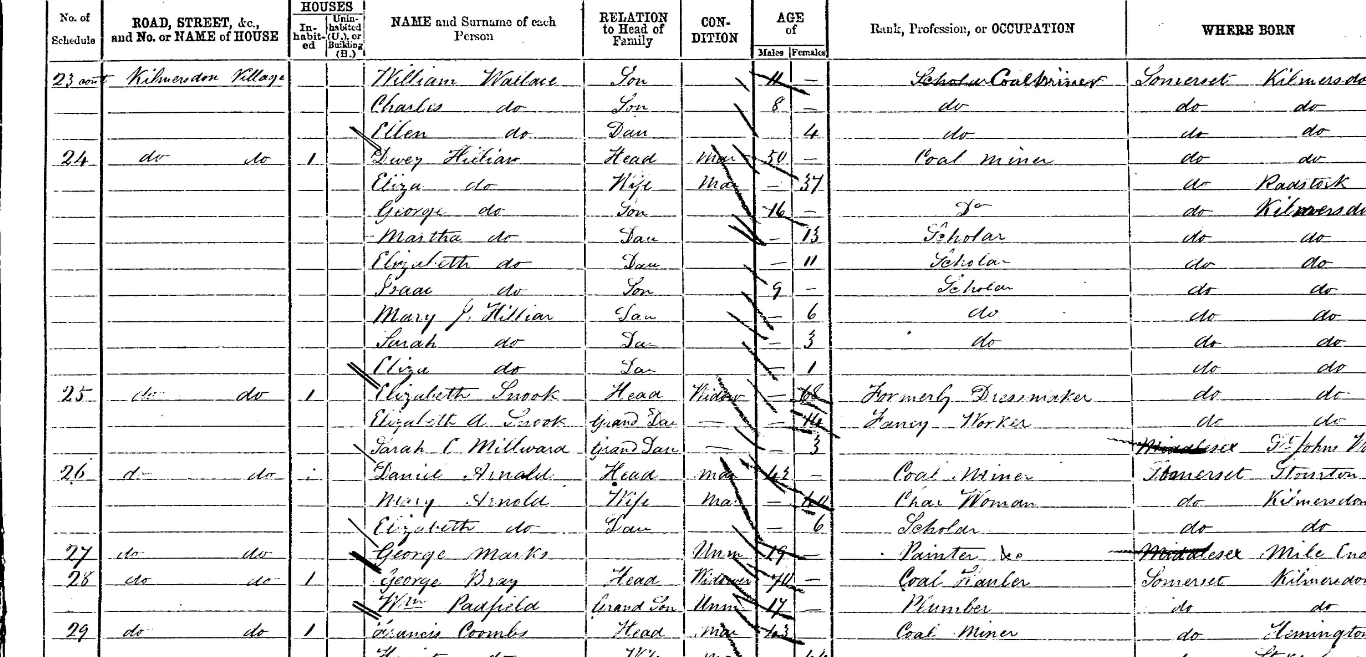 No. of Schedule | ROAD, STREET, &c., and No. or NAME of HOUSE | HOUSES In-habit-ed | Unin-habited (U.), or Building (B.) | NAME and Surname of each Person | RELATION to Head of Family | CON-DITION | AGE of Males | Females | Rank, Profession, or OCCUPATION | WHERE BORN
23 cont Kilmersdon Village William Wallace Son 11 – Scholar Coal miner Somerset Kilmersdo
Charlis do Son 8 – do do do
Ellen do Dau 4 do do do
24 do do 1 Hillian Head Mar 50 – Coal miner do do
Eliza do Wife Mar – 37 do Radstock
George do Son 16 – Do do Kilmersdo
Martha do Dau – 13 Scholar do do
Elizabeth do Dau – 11 Scholar do do
Isaac do Son 9 – Scholar do do
Mary J. Hilliar Dau – 6 do do do
Sarah do Dau – 3 do do do
Eliza do Dau – 1 do do
25 do do 1 Elizabeth Snook Head Widow – 68 Formerly Dressmaker do do
Elizabeth A. Snook Grand Dau – – Fancy Worker do do
Sarah E Millward Grand Dau – – 3 Middlesex St Johns Wo
26 do do Daniel Arnold Head Mar – Coal Miner Somerset
Mary Arnold Wife Mar – Char Woman do Kilmersdon
Elizabeth do Dau 6 Scholar do do
27 do do George Marks Unm 19 – Painter &c Middlesex Mile End
28 do do 1 George Bray Head Widower 70 – Coal Hauler Somerset Kilmersdon
Wm Padfield Grand Son Unm 17 – Plumber do do
29 do do 1 Francis Coombs Head Mar 43 – Coal Miner do Hemington
do Wife